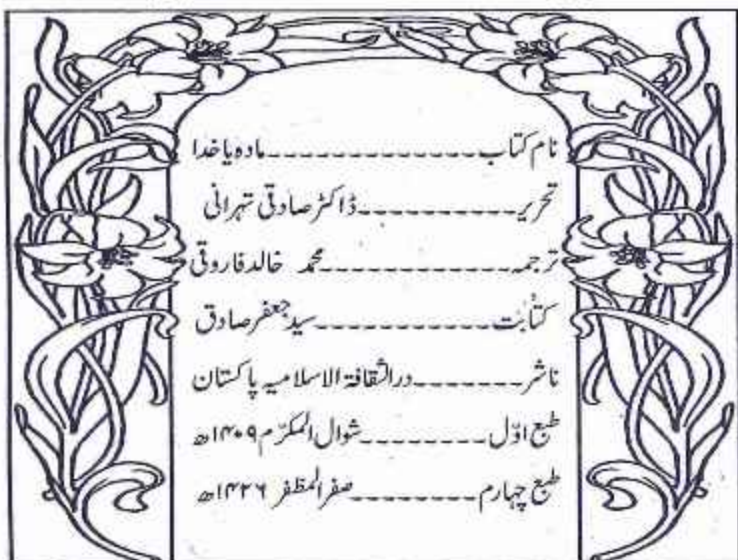 نام کتاب--------------مادہ یا خدا
تحریر-----------ڈاکٹر صادقی تہرانی
ترجمہ------------محمد خالد فاروقی
کتابت------------سید جعفر صادق
ناشر-------درالثقافۃ الاسلامیہ پاکستان
طبع اوّل---------شوال المکرّم ۱۴۰۹ھ
طبع چہارم--------صفر المظفر ۱۴۳۶ھ